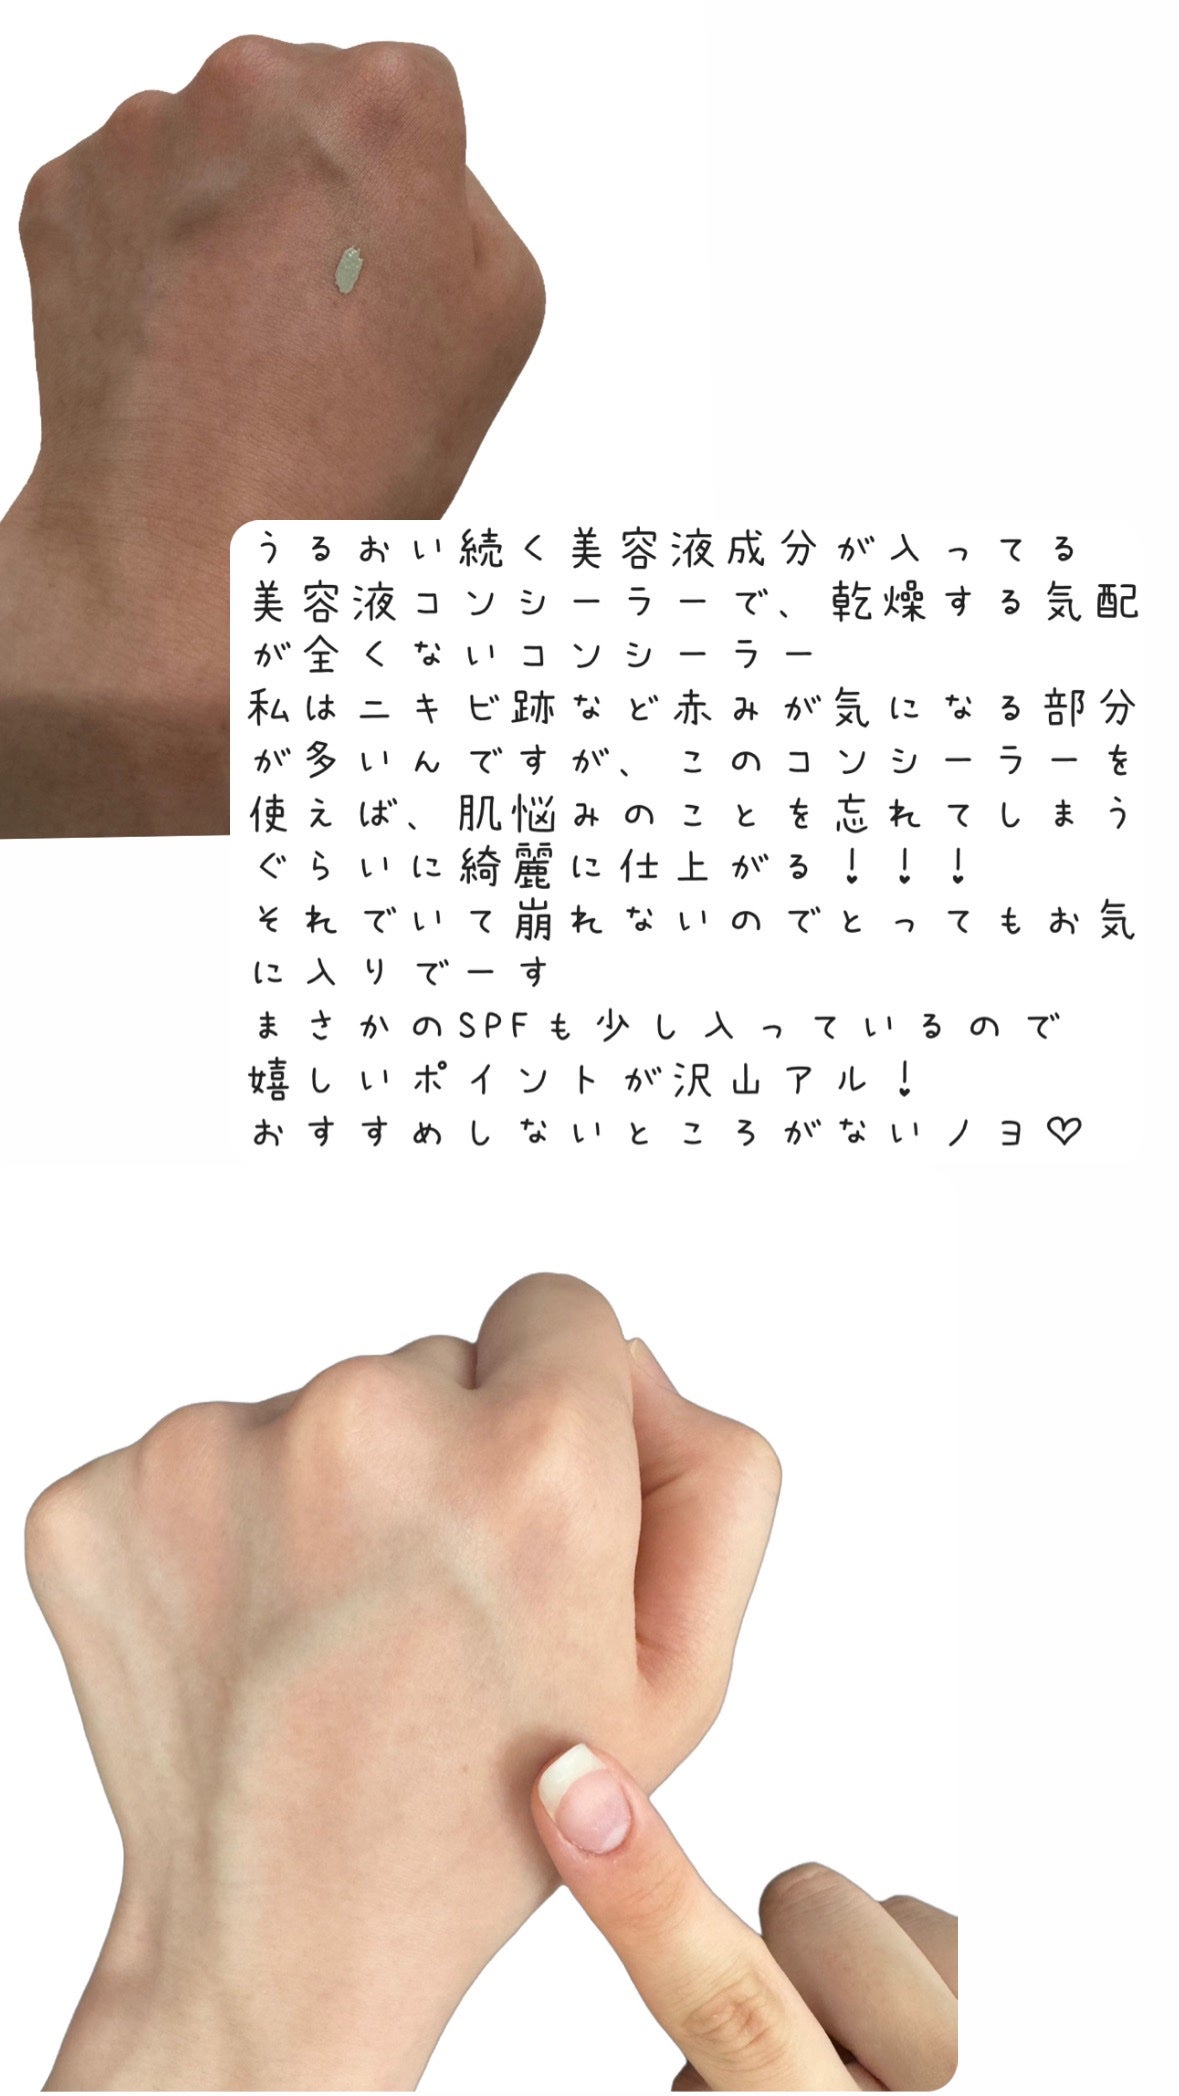 うるおい続く美容液成分が入ってる
美容液コンシーラーで、乾燥する気配
が全くないコンシーラー
私はニキビ跡など赤みが気になる部分
が多いんですが、このコンシーラーを
使えば、肌悩みのことを忘れてしまう
ぐらいに綺麗に仕上がる！！！
それでいて崩れないのでとってもお気
に入りでーす
まさかのSPFも少し入っているので
嬉しいポイントが沢山アル！
おすすめしないところがないノヨ♡